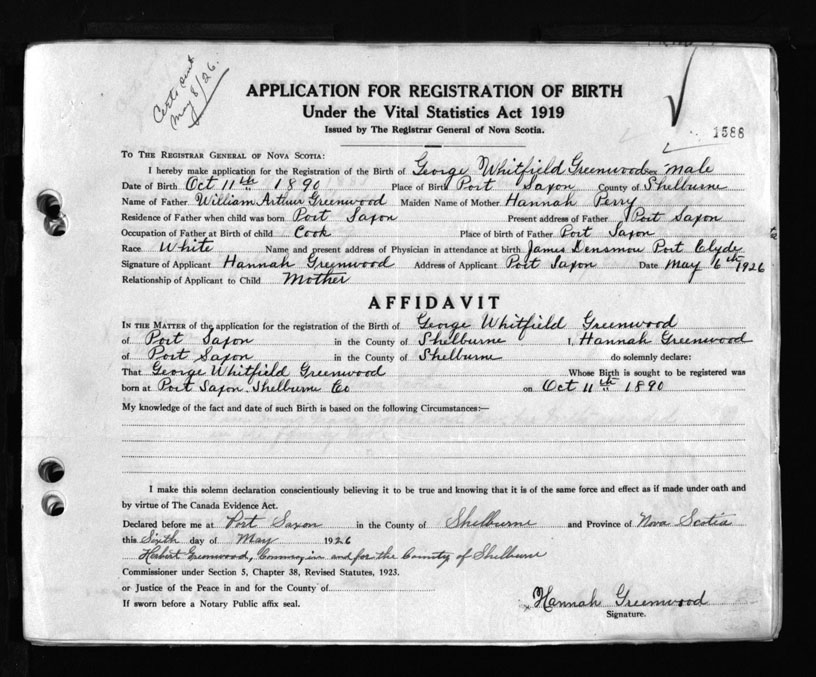 Certs sent
May 8/26.
APPLICATION FOR REGISTRATION OF BIRTH
Under the Vital Statistics Act 1919
Issued by The Registrar General of Nova Scotia.
1586
TO THE REGISTRAR GENERAL OF NOVA SCOTIA:
I hereby make application for the Registration of the Birth of George Whitfield Greenwood Sex male
Date of Birth Oct 11th 1890 Place of Birth Port Saxon County of Shelburne
Name of Father William Arthur Greenwood Maiden Name of Mother Hannah Perry
Residence of Father when child was born Port Saxon Present address of Father Port Saxon
Occupation of Father at Birth of child Cook Place of birth of Father Port Saxon
Race White Name and present address of Physician in attendance at birth James Densmou Port Clyde
Signature of Applicant Hannah Greenwood Address of Applicant Port Saxon Date May 6th 1926
Relationship of Applicant to Child Mother
AFFIDAVIT
IN THE MATTER of the application for the registration of the Birth of George Whitfield Greenwood
of Port Saxon in the County of Shelburne I, Hannah Greenwood
of Port Saxon in the County of Shelburne do solemnly declare:
That George Whitfield Greenwood Whose Birth is sought to be registered was
born at Port Saxon Shelburne Co on Oct 11th 1890
My knowledge of the fact and date of such Birth is based on the following Circumstances:—
I make this solemn declaration conscientiously believing it to be true and knowing that it is of the same force and effect as if made under oath and
by virtue of The Canada Evidence Act.
Declared before me at Port Saxon in the County of Shelburne and Province of Nova Scotia
this Sixth day of May 1926
Herbert Greenwood, in and for the County of Shelburne
Commissioner under Section 5, Chapter 38, Revised Statutes, 1923.
or Justice of the Peace in and for the County of
If sworn before a Notary Public affix seal.
Hannah Greenwood
Signature.